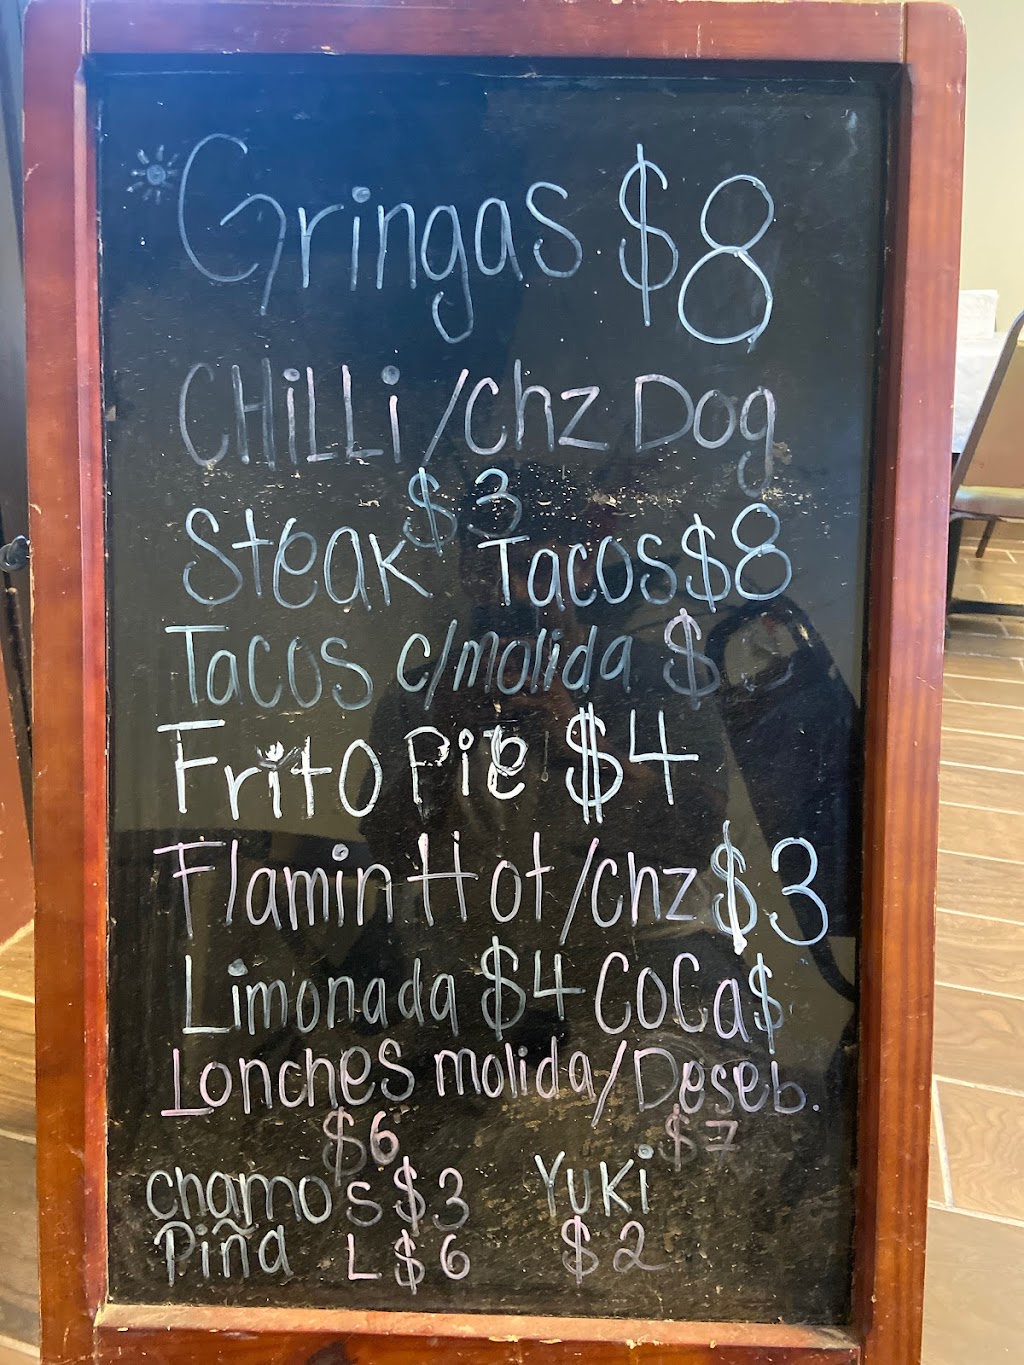 Gringas $8
CHiLLi/Chz Dog
$3
Steak Tacos $8
Tacos c/molida $
Frito Pie $4
Flamin Hot/chz $3
Limonada $4 CoCa $
Lonches molida/Deseb.
$6 $7
chamo s $3 Yuki
Piña L $6 $2